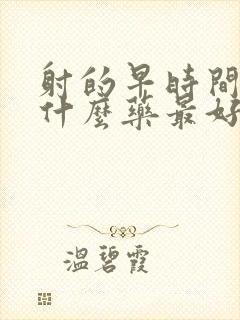 射的早時間
什麼藥最好
溫碧霞